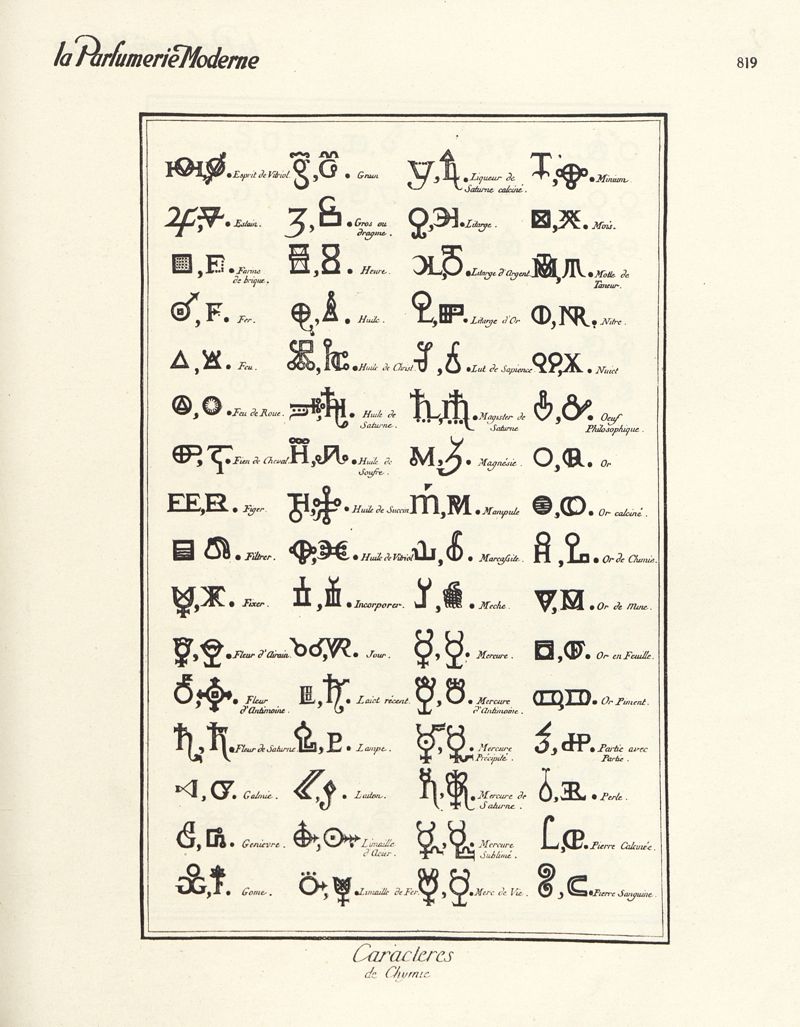 la Parfumerie Moderne
819
Esprit de Vitriol.
Grain
Liqueur de
Saturne calciné.
Minium.
Estain.
Gros ou
dragme.
Litarge.
Mois.
Farine
de brique.
Heure.
Litarge d'Argent.
Motte de
Taneur.
Fer.
Huile.
Litarge d'Or
Nitre.
Feu.
Huile de Christ.
Lut de Sapience
Nuict
Feu de Roue.
Huile de
Saturne.
Magister de
Saturne
Oeuf
Philosophique.
Fien de Cheval.
Huile de
Soufre.
Magnésie.
Or
Figer.
Huile de Succin
Manipule
Or calciné.
Filtrer.
Huile de Vitriol
Marcassite.
Or de Chimie.
Fixer.
Incorporer.
Meche.
Or de Mine.
Fleur d'Airain.
Jour.
Mercure.
Or en Feuille.
Fleur
d'Antimoine.
Laict récent.
Mercure
d'Antimoine.
Or Piment.
Fleur de Saturne.
Lampe.
Mercure
Précipité.
Partie avec
Partie.
Galmie.
Laiton.
Mercure de
Saturne.
Perle.
Genievre.
Limaille
d'Acier.
Mercure
Sublimé.
Pierre Calcinée.
Gome.
Limaille de Fer.
Merc de Vie.
Pierre Sanguine.
Caracteres
de Chymie